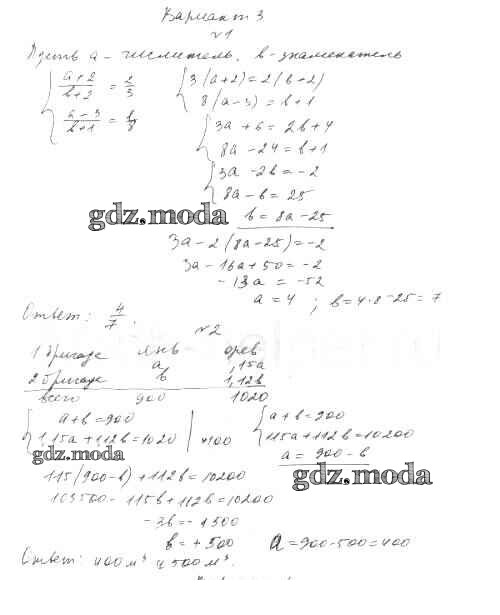 Вариант 3
№1
Пусть a – числитель, b – знаменатель
{ (a+2)/(b+2) = 2/3 { 3(a+2)=2(b+2)
{ (a-3)/(b+1) = 1/8 { 8(a-3)=b+1
{ 3a+6=2b+4
{ 8a-24=b+1
{ 3a-2b=-2
{ 8a-b=25
gdz.moda b=8a-25
3a-2(8a-25)=-2
3a-16a+50=-2
-13a=-52
a=4 ; b=4·8-25=7
Ответ: 4/7.
№2
1 бригада янв фев
a 1,15a
2 бригада b 1,12b
всего 900 1020
{ a+b=900 { a+b=900
{ 1,15a+112b=1020 | *100 115a+112b=10200
gdz.moda a=900-b
115(900-b)+112b=10200 gdz.moda
103500-115b+112b=10200
-3b=-1500
b=+500 a=900-500=400
Ответ: 400м³ и 500м³.